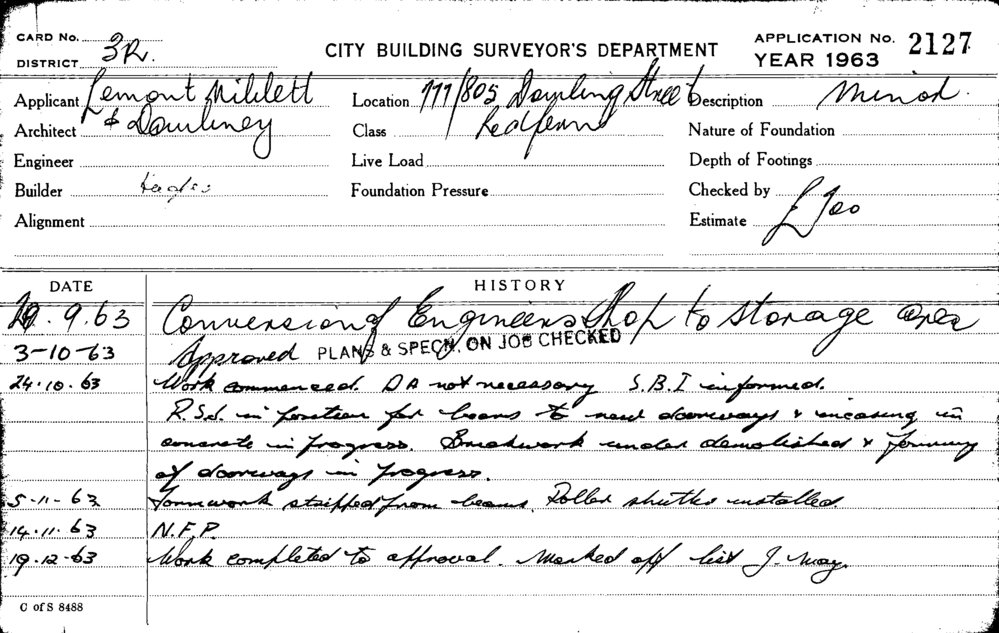 CARD No. 3R.
DISTRICT
CITY BUILDING SURVEYOR'S DEPARTMENT
APPLICATION No. 2127
YEAR 1963
Applicant Lemont Millett
Location 777/805 Dowling Street
Description Minor.
Architect & Dowliney
Class Redfern
Nature of Foundation
Engineer
Live Load
Depth of Footings
Builder
Foundation Pressure
Checked by
Alignment
Estimate £700
DATE HISTORY
9.63 Conversion of Engineers Shop to storage area
3-10-63 Approved PLANS & SPECN. ON JOB CHECKED
24.10.63 Work commenced. DA not necessary S.B.I informed.
R.S.J. in position for beams to new doorways & incasing in
concrete in progress. Brickwork under demolished & forming
of doorways in progress.
5-11-63 Formwork stripped from beams. Roller shutter installed.
14.11.63 N.F.P.
19.12-63 Work completed to approval. Marked off list J. May.
C of S 8488